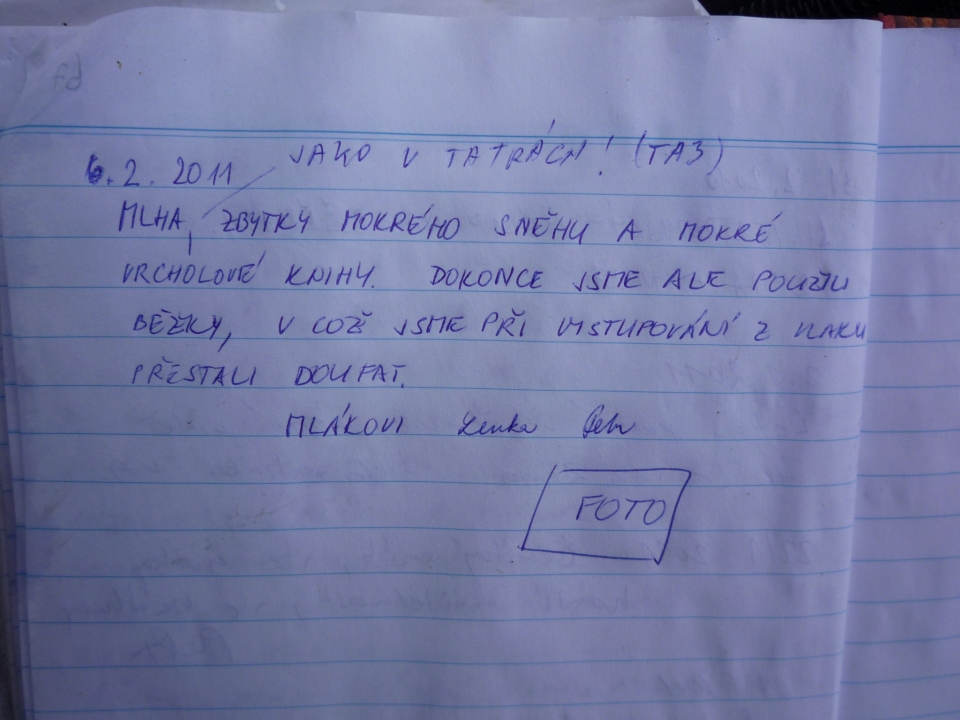 JAKO V TATRÁCH! (TAJ)
6.2.2011
MLHA, ZBYTKY MOKRÉHO SNĚHU A MOKRÉ
VRCHOLOVÉ KNIHY. DOKONCE JSME ALE POUŽILI
BĚŽKY, V COŽ JSME PŘI VYSTUPOVÁNÍ Z VLAKU
PŘESTALI DOUFAT.
MLÁKOVI Lenka Petr
FOTO